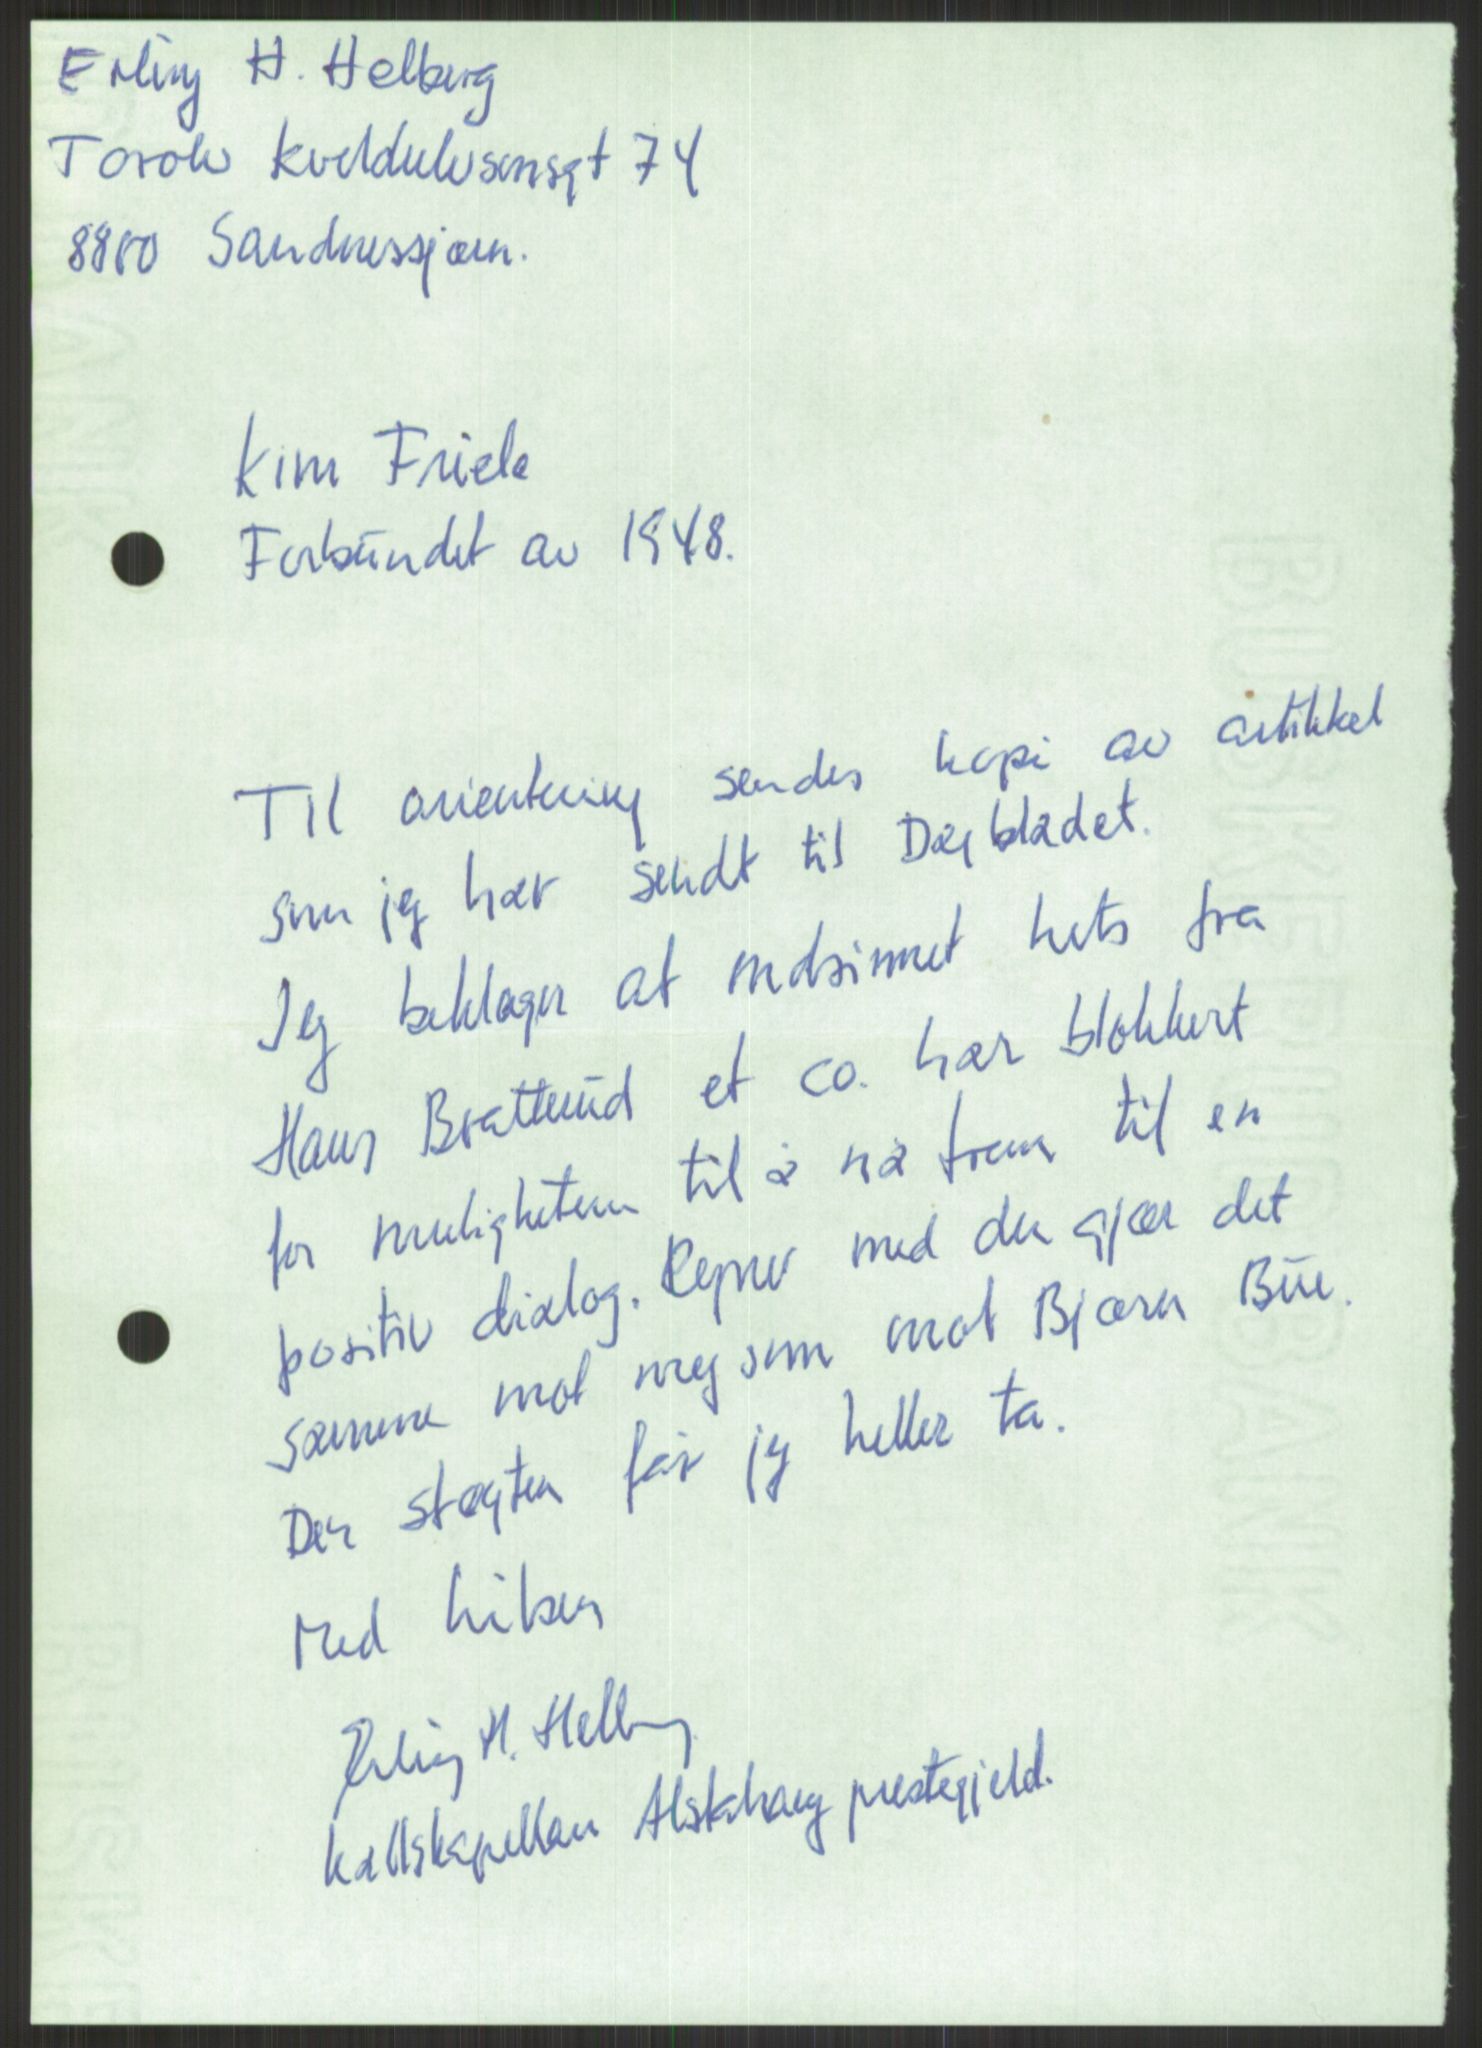 Erling H. Helberg
Torolv Kveldulvsonsgt 74
8800 Sandnessjøen.
Kim Friele
Forbundet av 1948.
Til orientering sendes kopi av artikkel
som jeg har sendt til Dagbladet.
Jeg beklager at ondsinnet hets fra
Hans Bratterud et co. har blokkert
for muligheten til å nå frem til en
positiv dialog. Regner med de gjør det
samme mot meg som mot Bjørn Bue.
Den støyten får jeg heller ta.
Med hilsen
Erling H. Helberg
kallskapellan Alstahaug prestegjeld.
BUSKERUDBANK